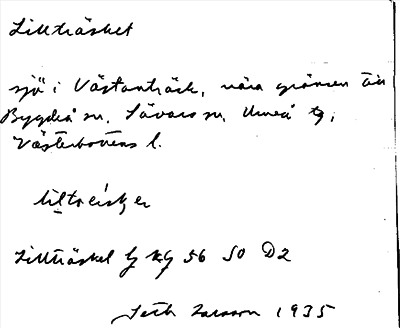 Lillträsket
sjö i Västanträsk, nära gränsen till
Bygdeå sn, Sävars sn, Umeå tg,
Västerbottens l.
Lillträsket Gkg 56 SO D2
Seth Larsson 1935